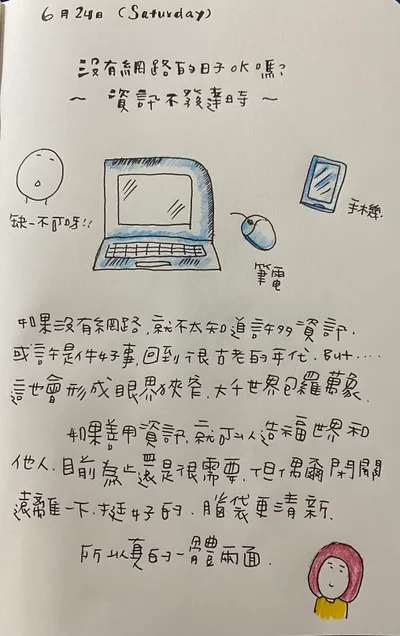 6月24日 (Saturday)
沒有網路的日子OK嗎?
~ 資訊不發達時 ~
缺一不可呀!!
手機
筆電
如果沒有網路,就不太知道許多資訊,
或許是件好事,回到很古老的年代.But....
這也會形成眼界狹窄,大千世界包羅萬象.
如果善用資訊,就可以造福世界和
他人,目前為止還是很需要,但偶爾閉關
遠離一下,挺好的,腦袋更清新.
所以真的一體兩面.